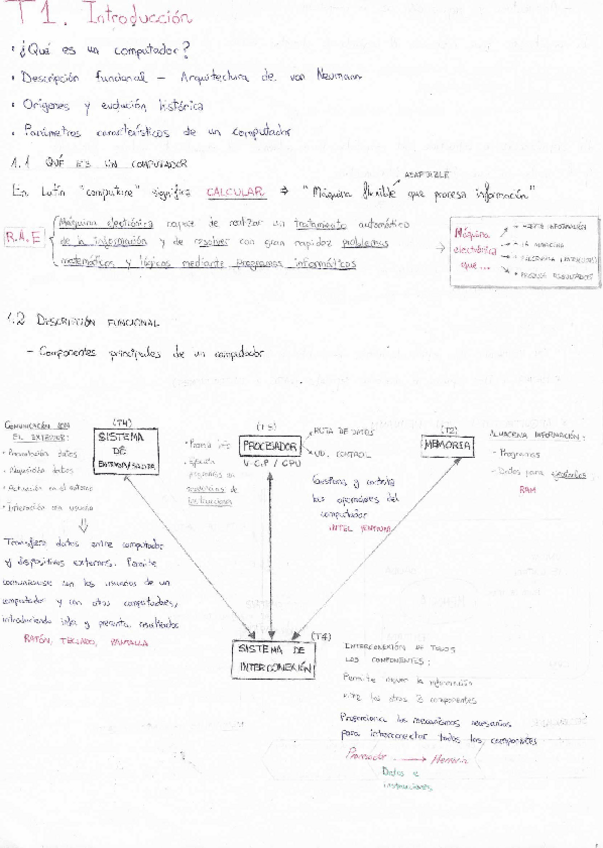 T1. Introducción
· ¿Qué es un computador?
· Descripción funcional - Arquitectura de von Neumann
· Orígenes y evolución histórica
· Parámetros característicos de un computador
1.1 QUÉ ES UN COMPUTADOR
ADAPTABLE
En Latín "computare" significa CALCULAR ⇒ "Máquina flexible que procesa información"
R.A.E
Máquina electrónica capaz de realizar un tratamiento automático
de la información y de resolver con gran rapidez problemas
matemáticos y lógicos mediante programas informáticos
→ Máquina
electrónica
que ...
INFORMACIÓN
RESULTADOS
1.2 DESCRIPCIÓN FUNCIONAL
- Componentes principales de un computador
COMUNICACIÓN CON
EL EXTERIOR:
· Presentación datos
· Adquisición datos
· Interacción con usuario
(T4)
SISTEMA
DE
ENTRADA/SALIDA
Transfiere datos entre computador
y dispositivos externos. Permite
comunicarse con los usuarios de un
computador y con otros computadores,
introduciendo info y presenta resultados
RATÓN, TECLADO, PANTALLA
PROCESADOR
U.C.P / CPU
programas en
de
instrucciones
RUTA DE DATOS
UD. CONTROL
Gestiona y controla
las operaciones del
computador
INTEL PENTIUM
(T2)
MEMORIA
ALMACENA INFORMACIÓN:
- Programas
- Datos para
RAM
(T4)
SISTEMA DE
INTERCONEXIÓN
INTERCONEXIÓN DE TODOS
LOS COMPONENTES:
Permite mover la información
entre los otros 3 componentes
Proporciona los mecanismos necesarios
para interconectar todos los componentes
Procesador → Memoria
Datos e
instrucciones